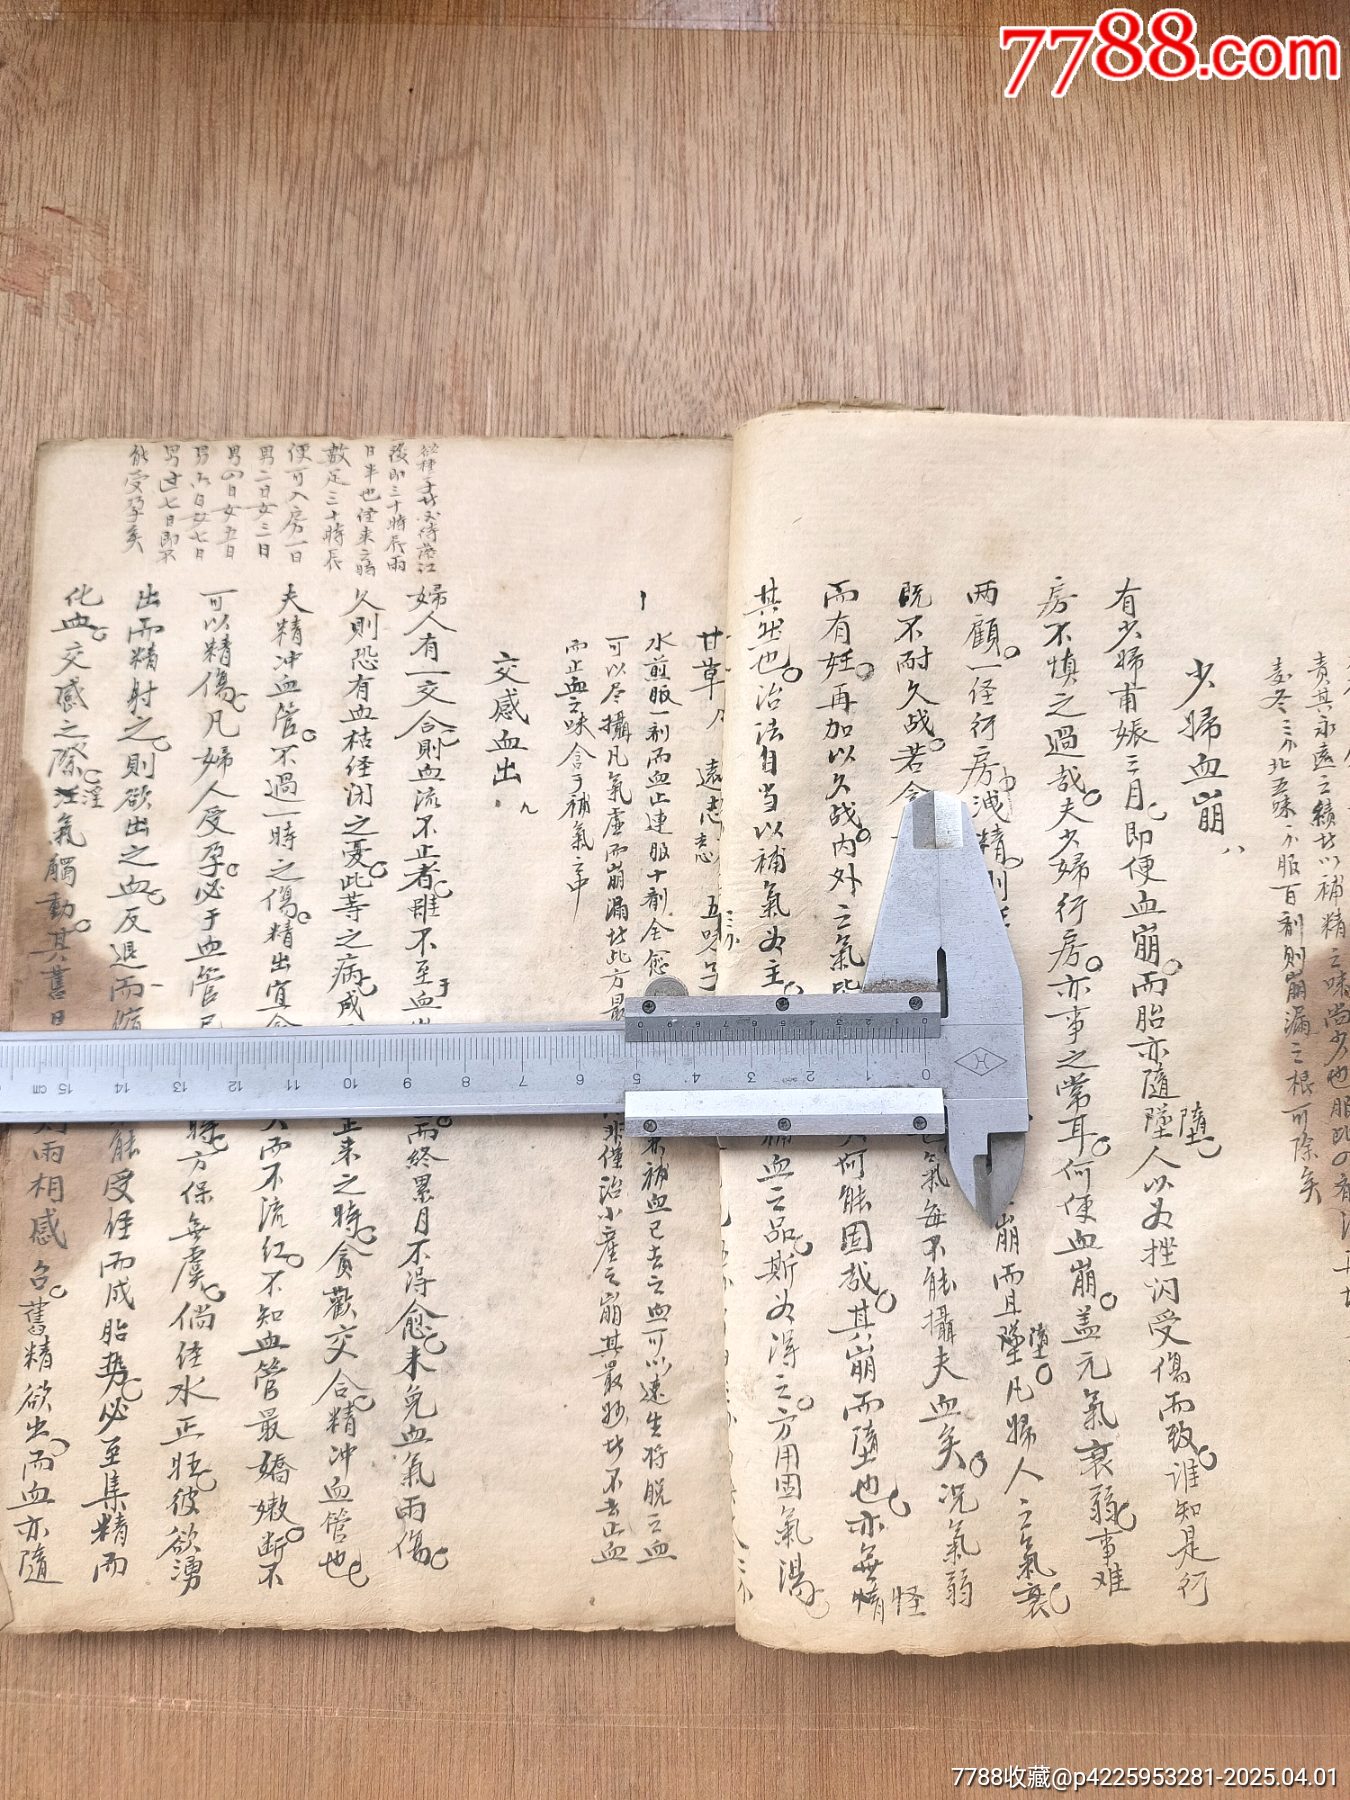 7788.com
責其永遠之績
以補精之味尚少也服此
麦冬三不北五味一不服百剂則崩漏之根可除矣
少婦血崩 八
有少婦甫娠三月即便血崩而胎亦隨墜人以为挫闪受傷而致谁知是行
墮
房不慎之過哉夫少婦行房亦事之常耳何便血崩盖元氣衰弱事难
两顧一经行房洩精則
崩而且墜凡婦人之氣衰
墮
既不耐久战若令
氣每不能攝夫血矣况氣弱
而有妊再加以久战内外之氣皆
何能固哉其崩而墮也亦無
怪
其然也治法自当以補氣为主
補血之品斯为淂之方用固氣湯
甘草 遠志 五味子
水煎服一剂而血止連服十剂全愈
補血已去之血可以速生将脱之血
可以尽攝凡氣虚而崩漏此方最
非僅治小産之崩其最妙
不去止血
而止血之味含于補氣之中
交感血出 九
婦人有一交合則血流不止者雖不至血
于
而終累月不淂愈未免血氣两傷
久則恐有血枯经闭之憂此等之病成
正来之時貪歡交合精冲血管也
夫精冲血管不過一時之傷精出宜
而不流红不知血管最嬌嫩断不
可以精傷凡婦人受孕必于血管已
時方保無虞倘经水正旺彼欲湧
出而精射之則欲出之血反退而縮
能受任而成胎势必至集精而
化血交感之際淫氣觸動其舊日
淫
則两相感召舊精欲出而血亦隨
後即三十時辰两
日半也经来之時
数足三十時辰
便可入房一日
男二日女三日
男四日女五日
男六日女七日
男过七日即不
能受孕矣
15 cm 14 13 12 11 10 9 8 7 6 5 4 3 2 1 0
7788收藏@p4225953281-2025.04.01